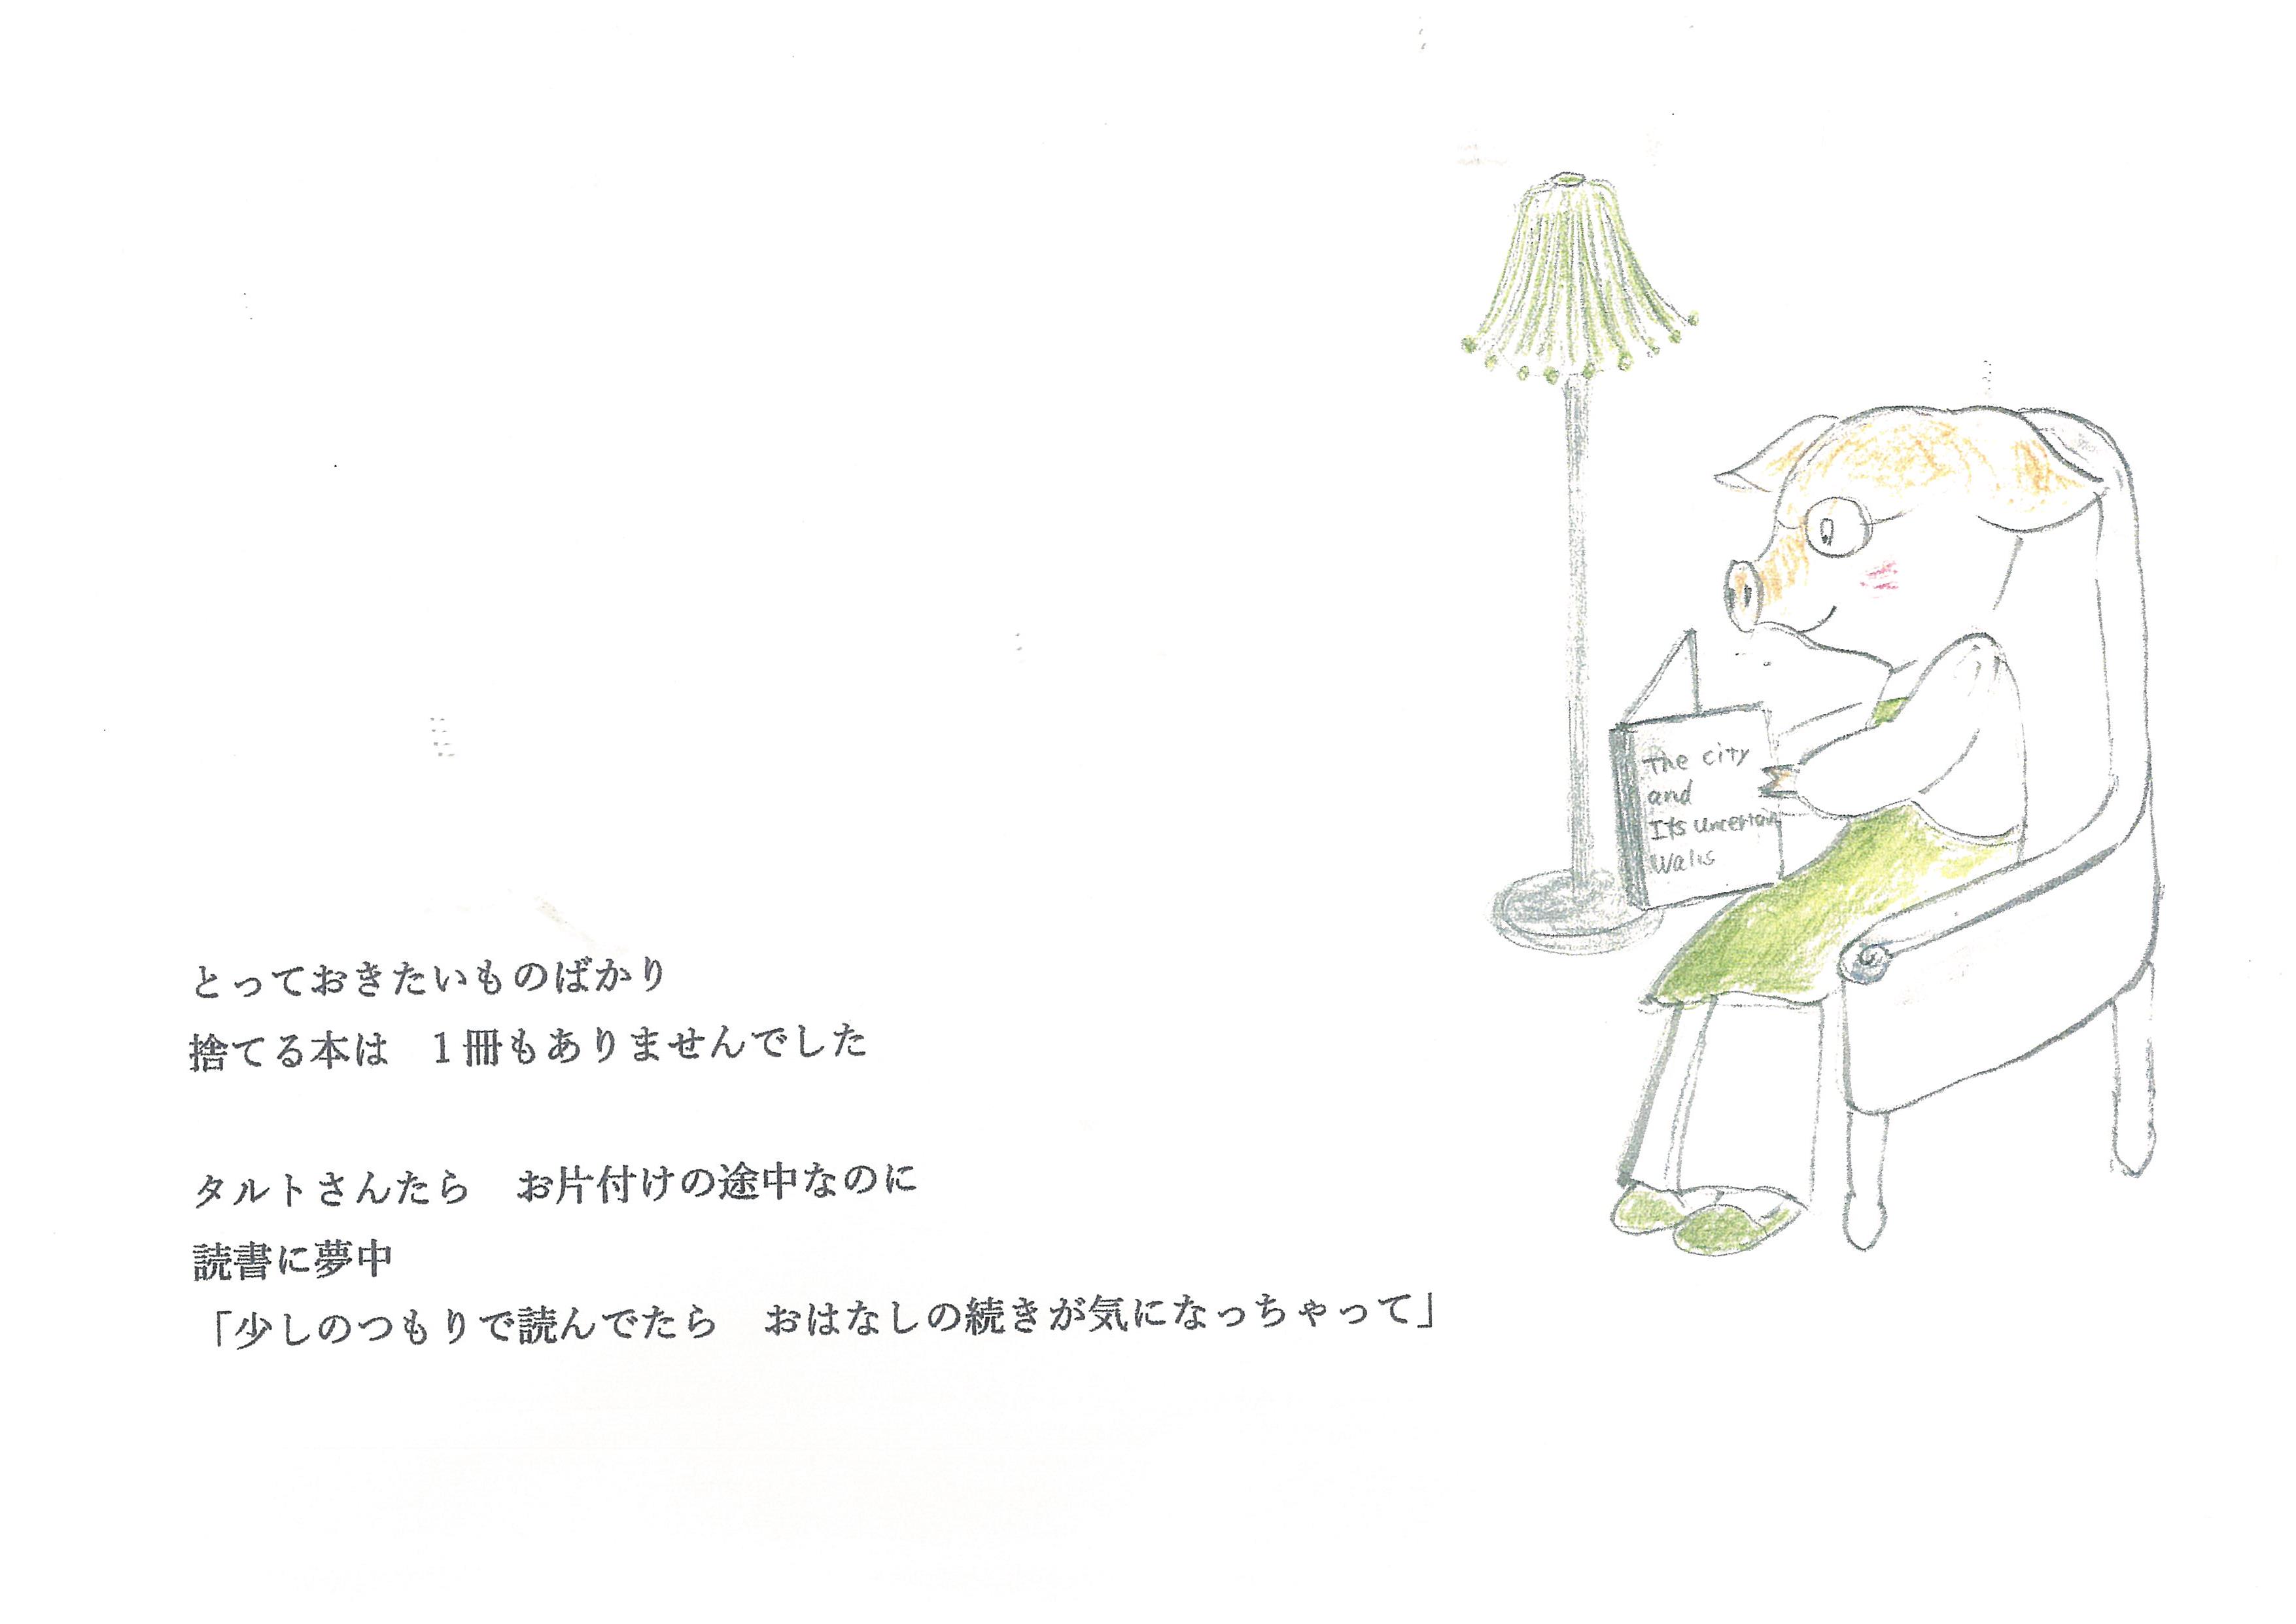 The city
and
Its uncertain
Walls
とっておきたいものばかり
捨てる本は　１冊もありませんでした
タルトさんたら　お片付けの途中なのに
読書に夢中
「少しのつもりで読んでたら　おはなしの続きが気になっちゃって」